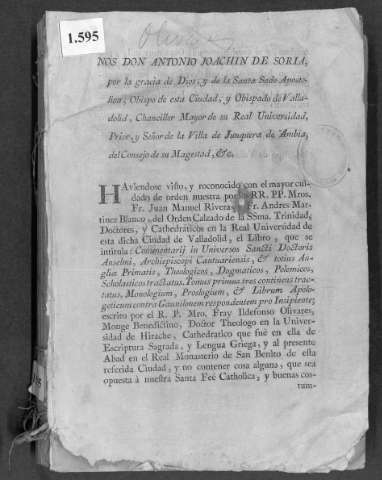 1.595
NOS DON ANTONIO JOACHIN DE SORIA,
por la gracia de Dios, y de la Santa Sede Aposto-
lica, Obispo de esta Ciudad, y Obispado de Valla-
dolid, Chanciller Mayor de su Real Universidad,
Prior, y Señor de la Villa de Junquera de Ambia,
del Consejo de su Magestad, &c.
HAviendose visto, y roconocido con el mayor cui-
dado de orden nuestra por RR. PP. Mros.
Fr. Juan Manuel Rivera, Fr. Andres Mar-
tinez Blanco, del Orden Calzado de la SSma. Trinidad,
Doctores, y Cathedraticos en la Real Universidad de
esta dicha Ciudad de Valladolid, el Libro, que se
intitula: Commentarij in Universos Sancti Doctoris
Anselmi, Archiepiscopi Cantuariensis, & totius An-
gliæ Primatis, Theologicos, Dogmaticos, Polemicos,
Scholasticos tractatus. Tomus primus tres continens trac-
tatus, Monologium, Proslogium, & Librum Apolo-
geticum contra Gaunilonem respondentem pro Insipiente;
escrito por el R. P. Mro. Fray Ildefonso Olivares,
Monge Benedictino, Doctor Theologo en la Univer-
sidad de Hirache, Cathedratico que fué en ella de
Escriptura Sagrada, y Lengua Griega, y al presente
Abad en el Real Monasterio de San Benito de esta
referida Ciudad, y no contener cosa alguna, que sea
opuesta à nuestra Santa Feé Catholica, y buenas cos-
tum-